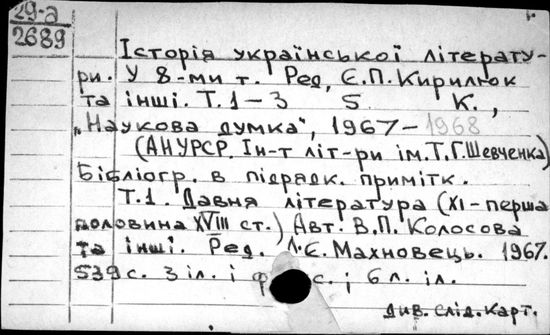 29-а
2689
Історія української літерату-
ри. У 8-ми т. Ред. Є.П.Кирилюк
та інші. Т.1-3 5 К.,
„Наукова думка", 1967-1968
(АНУРСР. Ін-т літ-ри ім.Т.Г.Шевченка)
Бібліогр. в підрядк. примітк.
Т.1. Давня література (XI-перша
половина XVIII ст.) Авт. В.П. Колосова
та інші. Ред. Л.Є. Махновець. 1967.
539 с. з іл. і с.; 6 л. іл.
Див. слід. карт.